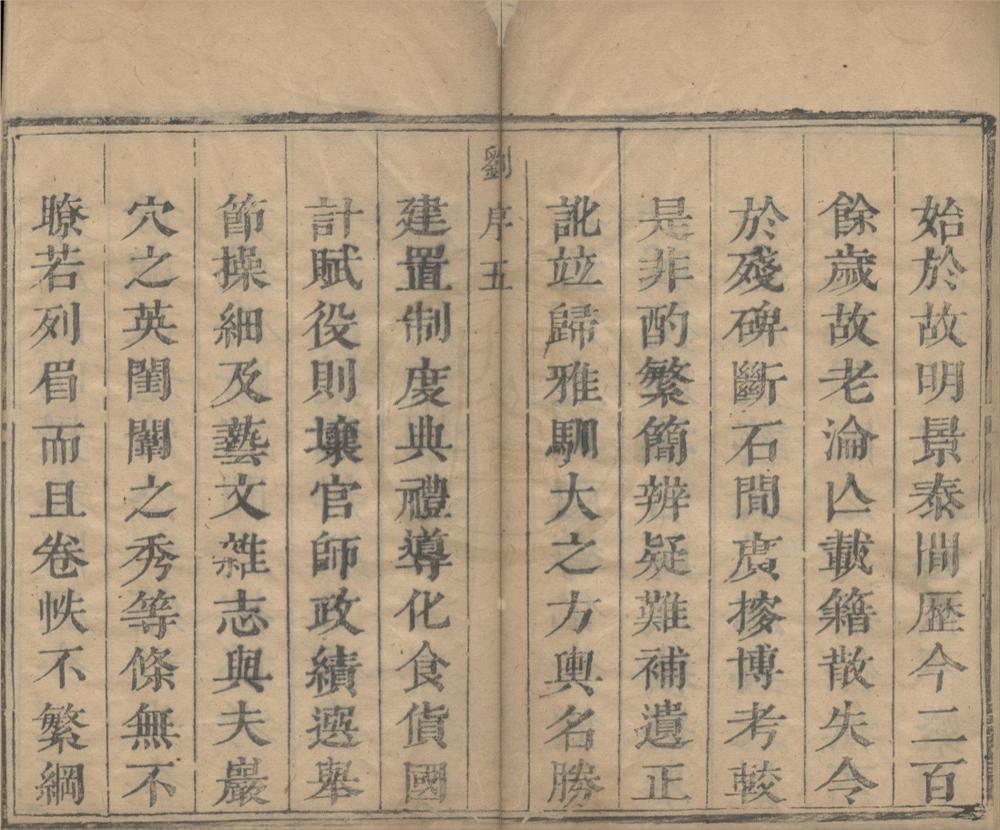 始於故明景泰間歷今二百
餘歲故老淪亾載籍散失今
於殘碑斷石間廣搜博考較
是非酌繁簡辨疑難補遺正
訛竝歸雅馴大之方輿名勝
劉序五
建置制度典禮導化食貨國
計賦役則壤官師政績選舉
節操細及藝文雜志與夫巖
穴之英閨闈之秀等條無不
瞭若列眉而且卷帙不繁綱